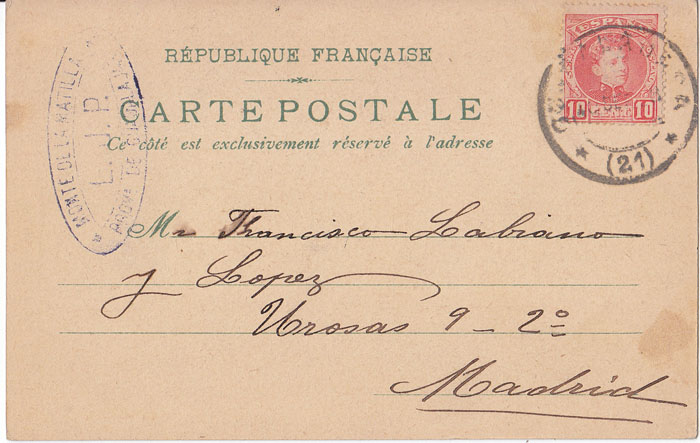 RÉPUBLIQUE FRANÇAISE
CARTE POSTALE
Ce côté est exclusivement réservé à l'adresse
MONTE DE LA MATILLA
L. J. R.
PROVª DE
ESPAÑA
10 10
(21)
Mr Francisco Labiano
y Lopez
Urosas 9 - 2º
Madrid